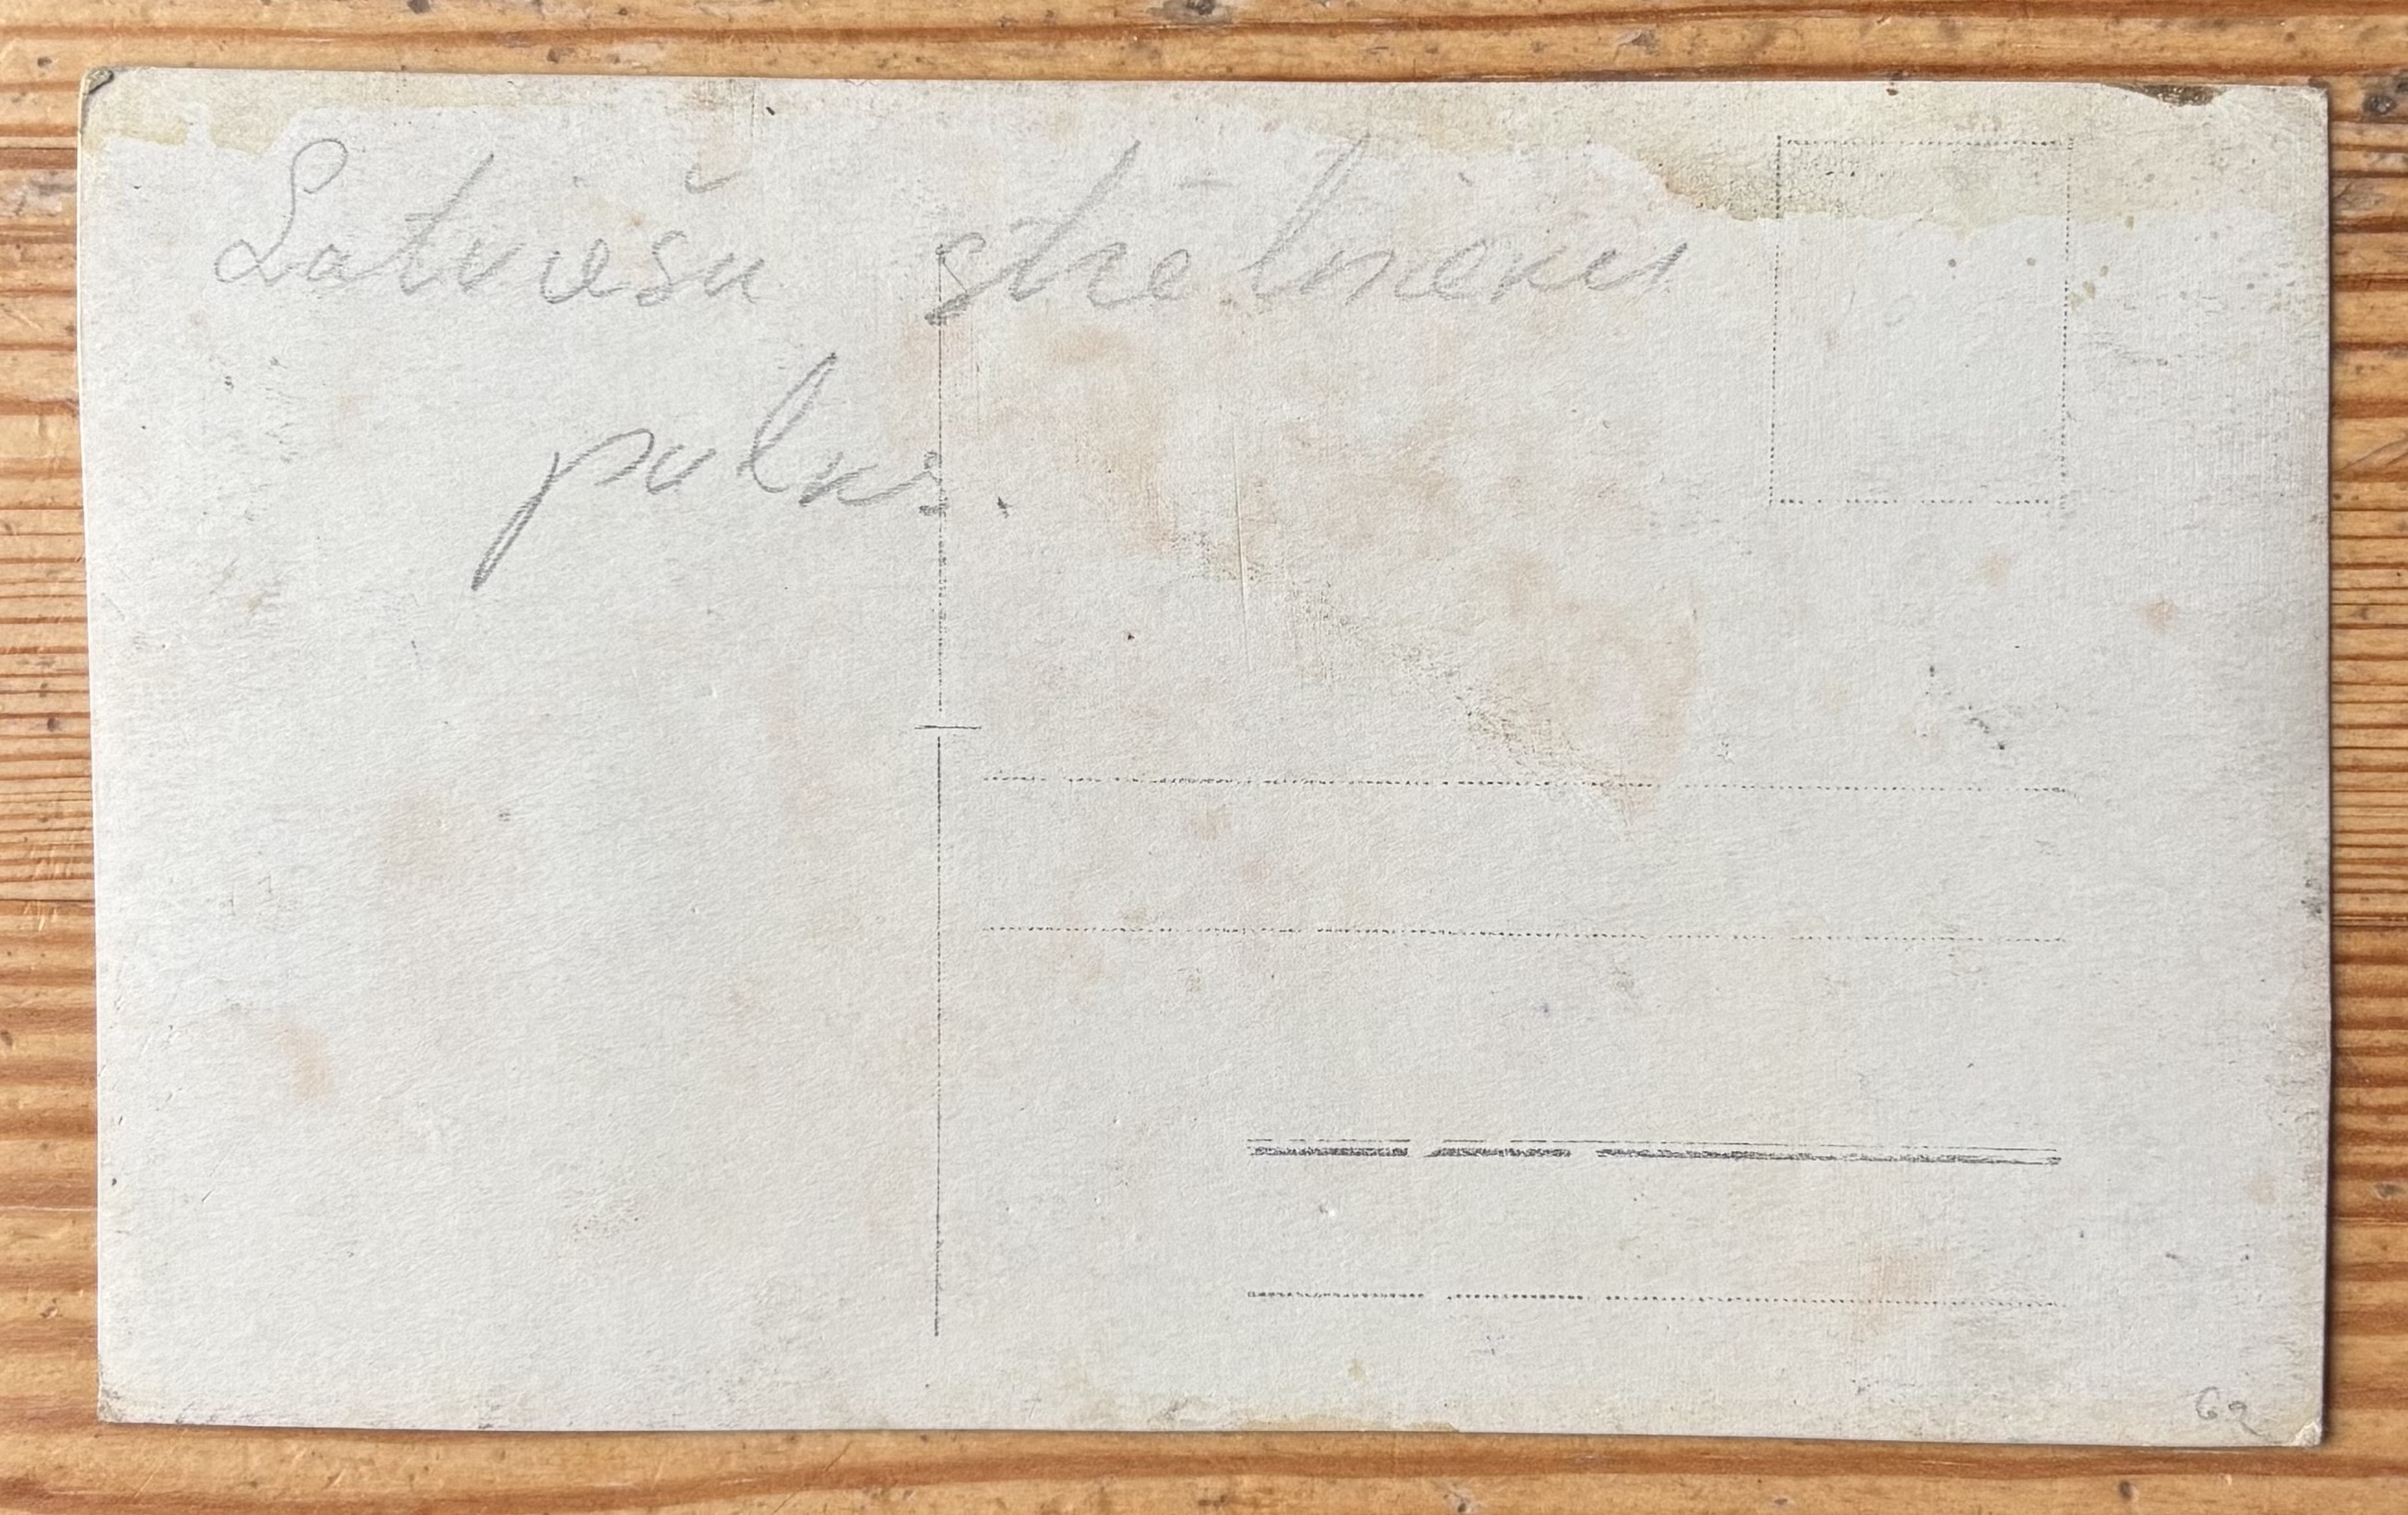 Latviešu strēlnieku
pulks.
62